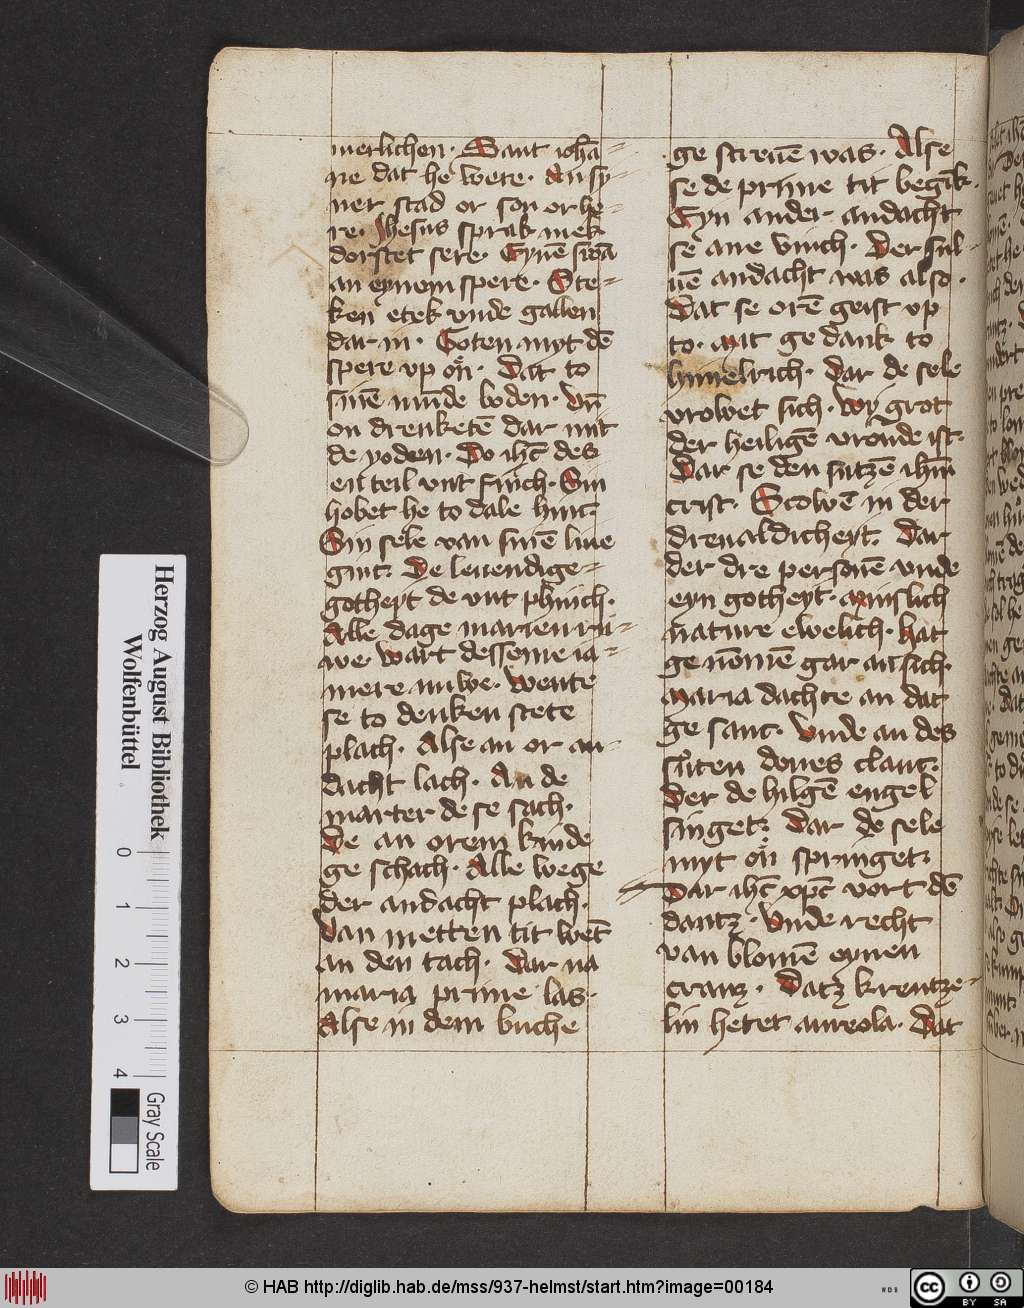 merlichen· Sant iohā=
ne dat he were· An sy=
ner stad or son or he=
re· Jhesus sprak mek
dorstet sere· Eynē swā
an eynem spere· Ste=
ken etek vnde gallen
dar in· Boten myt dē
spere vp on̄· Dat to
sinē mūde boden· Vn̄
on drenketē dar mit
de yoden· Do ihc̄ des
eil teil vnt finch· Sin
hobet he to dale hinc·
Sin sele van sinē liue
ginc· De leuendige=
gotheyt de vnt phinch·
Alle dage marien ru=
we· Wart dessome ia=
mere nuwe· Wente
se to denken stete
plach· Alse an or an=
dacht lach· An de
marter de se sach·
De an orem kinde
ge schach· Alle wege
der andacht plach·
Van metten tit wēt
an den tach· Dar na
maria prime las·
Alse in dem buche
ge screuē was· Alse
se de prime tit begīk·
Eyn ander andacht
se ane vinch· Der sul=
uē andacht was also·
Dat se orē geist vp
to· mit ge dank to
hymelrich· Dar de sele
vrowet sich· Wy grot
der heiligē vroude ist·
Dar se den sutzē ihm̄
crist· Scowē in der
dreualdicheyt· Dar
der dre personē vnde
eyn gotheyt· Minslich
nature ewelich· hat
ge nōmē gar an sich·
Maria dachte an dat
ge sanc· Vnde an des
suten dones clanc·
Der de hilgē engel
singet· Dar de sele
myt on̄ springet·
Dar ihc̄ xpc̄ vort dē
dantz· Vnde recht
van blomē eynen
cranz· Datz krentze=
lin hetet aureola· Dat
Herzog August Bibliothek
Wolfenbüttel
0 1 2 3 4
Gray Scale
© HAB http://diglib.hab.de/mss/937-helmst/start.htm?image=00184
WDB
cc BY SA